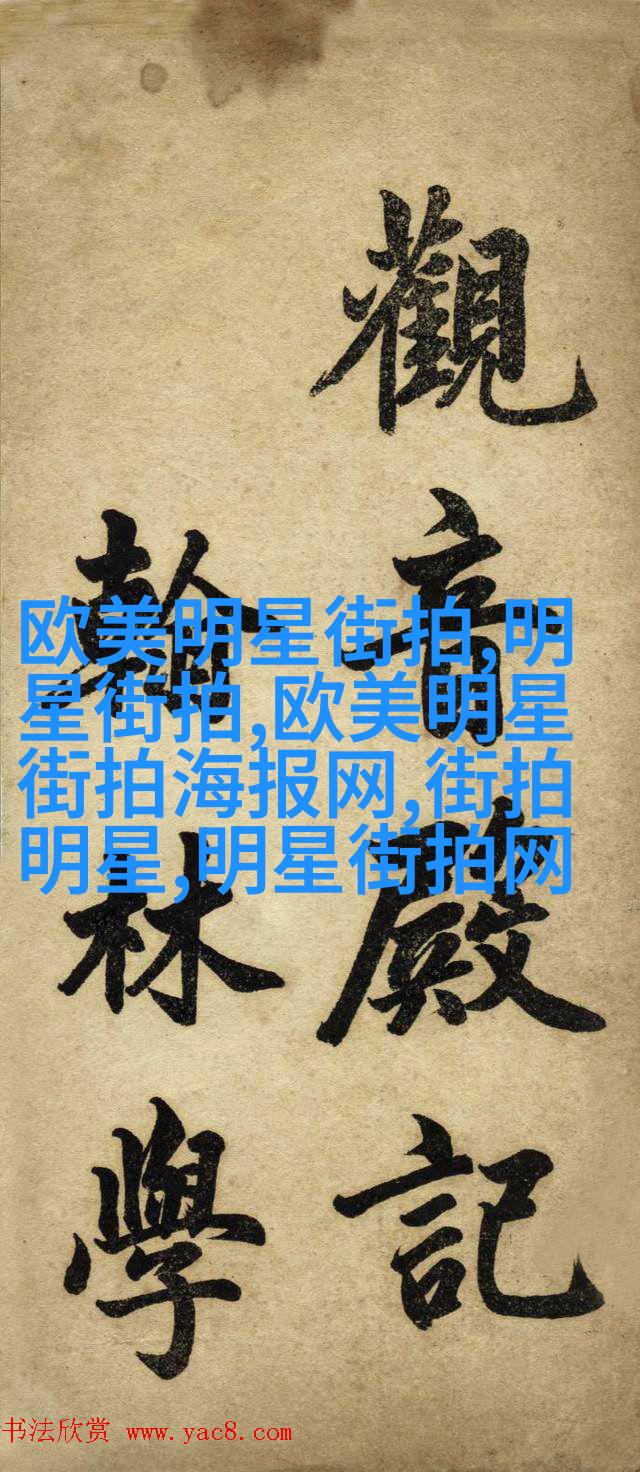 觀音殿記
翰林學
欧美明星街拍,明
星街拍,欧美明星
街拍海报网,街拍
明星,明星街拍网
书法欣赏 www.yac8.com